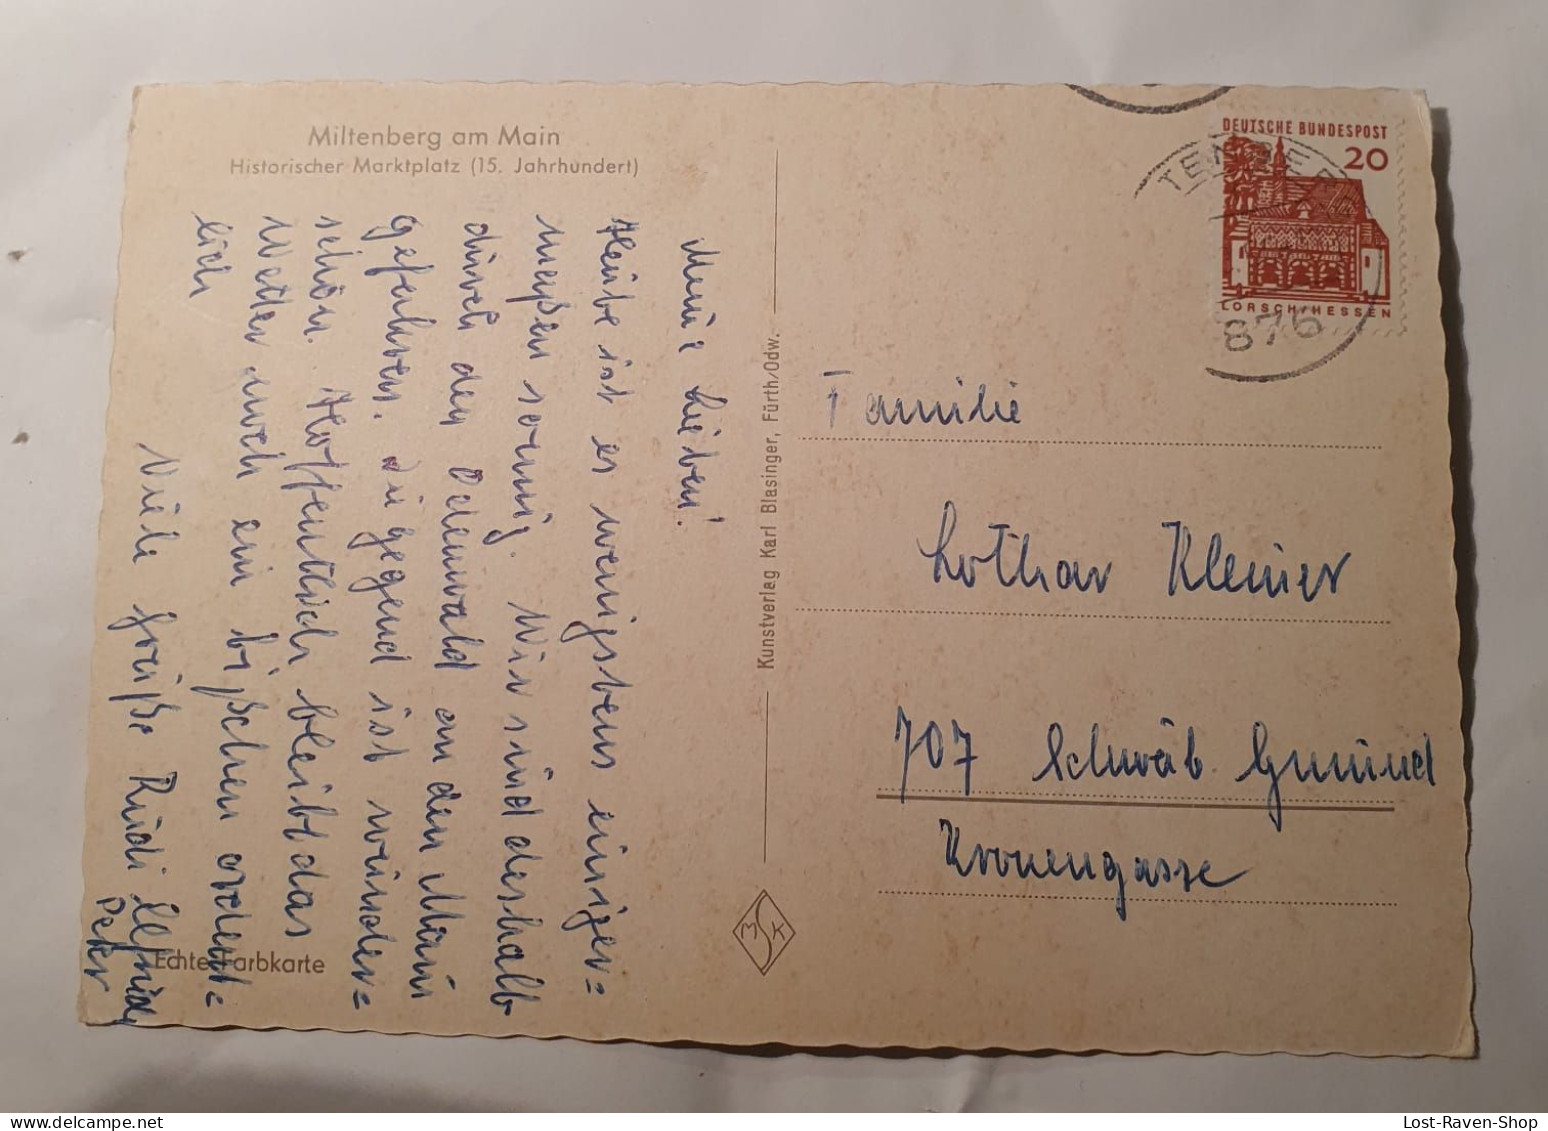 Miltenberg am Main
Historischer Marktplatz (15. Jahrhundert)
Meine Lieben!
Heute ist es wenigstens einiger=
maßen sonnig. Wir sind deshalb
durch den Odenwald an den Main
gefahren. Die Gegend ist wunder=
schön. Hoffentlich bleibt das
Wetter noch ein bißchen ordent=
lich
Viele Grüße Rudi
Peter
Echte Farbkarte
Kunstverlag Karl Blasinger, Fürth/Odw.
MSK
DEUTSCHE BUNDESPOST
20
LORSCH/HESSEN
TENBE
876
Familie
Lothar Kleiner
707 Schwäb. Gmünd
Kronengasse
Lost-Raven-Shop